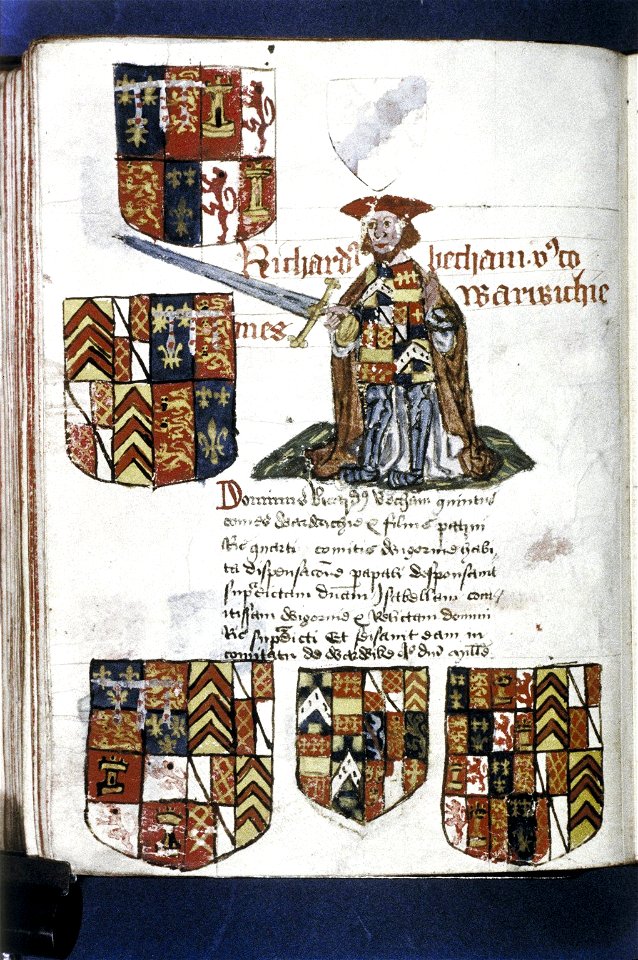 Richard9 becham. v9 co
mes Warwichie
Dominus Ricard9 Becham quintus
comes Warwichie & filius
Ric quarti comitis Wigornie habi
ta dispensacone papali desponsavit
sup dictam dnam Isabellam comi
tissam Wigornie & Relictam domini
Ric sup dicti Et seisavit eam in
comitatu de Warwike Ao dni mille